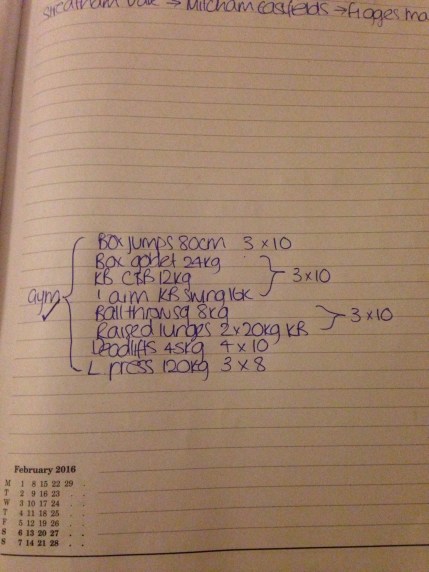 Streatham Vale → Mitcham eastfields → Figges ma
Box jumps 80cm 3 x 10
Box goblet 24kg
KB C&B 12kg 3 x 10
gym 1 arm KB swing 16k
Ball throw sq 8kg 3 x 10
Raised lunges 2 x 20kg KB
Deadlifts 45kg 4 x 10
L press 120kg 3 x 8
February 2016
M 1 8 15 22 29
T 2 9 16 23
W 3 10 17 24
T 4 11 18 25
F 5 12 19 26
S 6 13 20 27
S 7 14 21 28